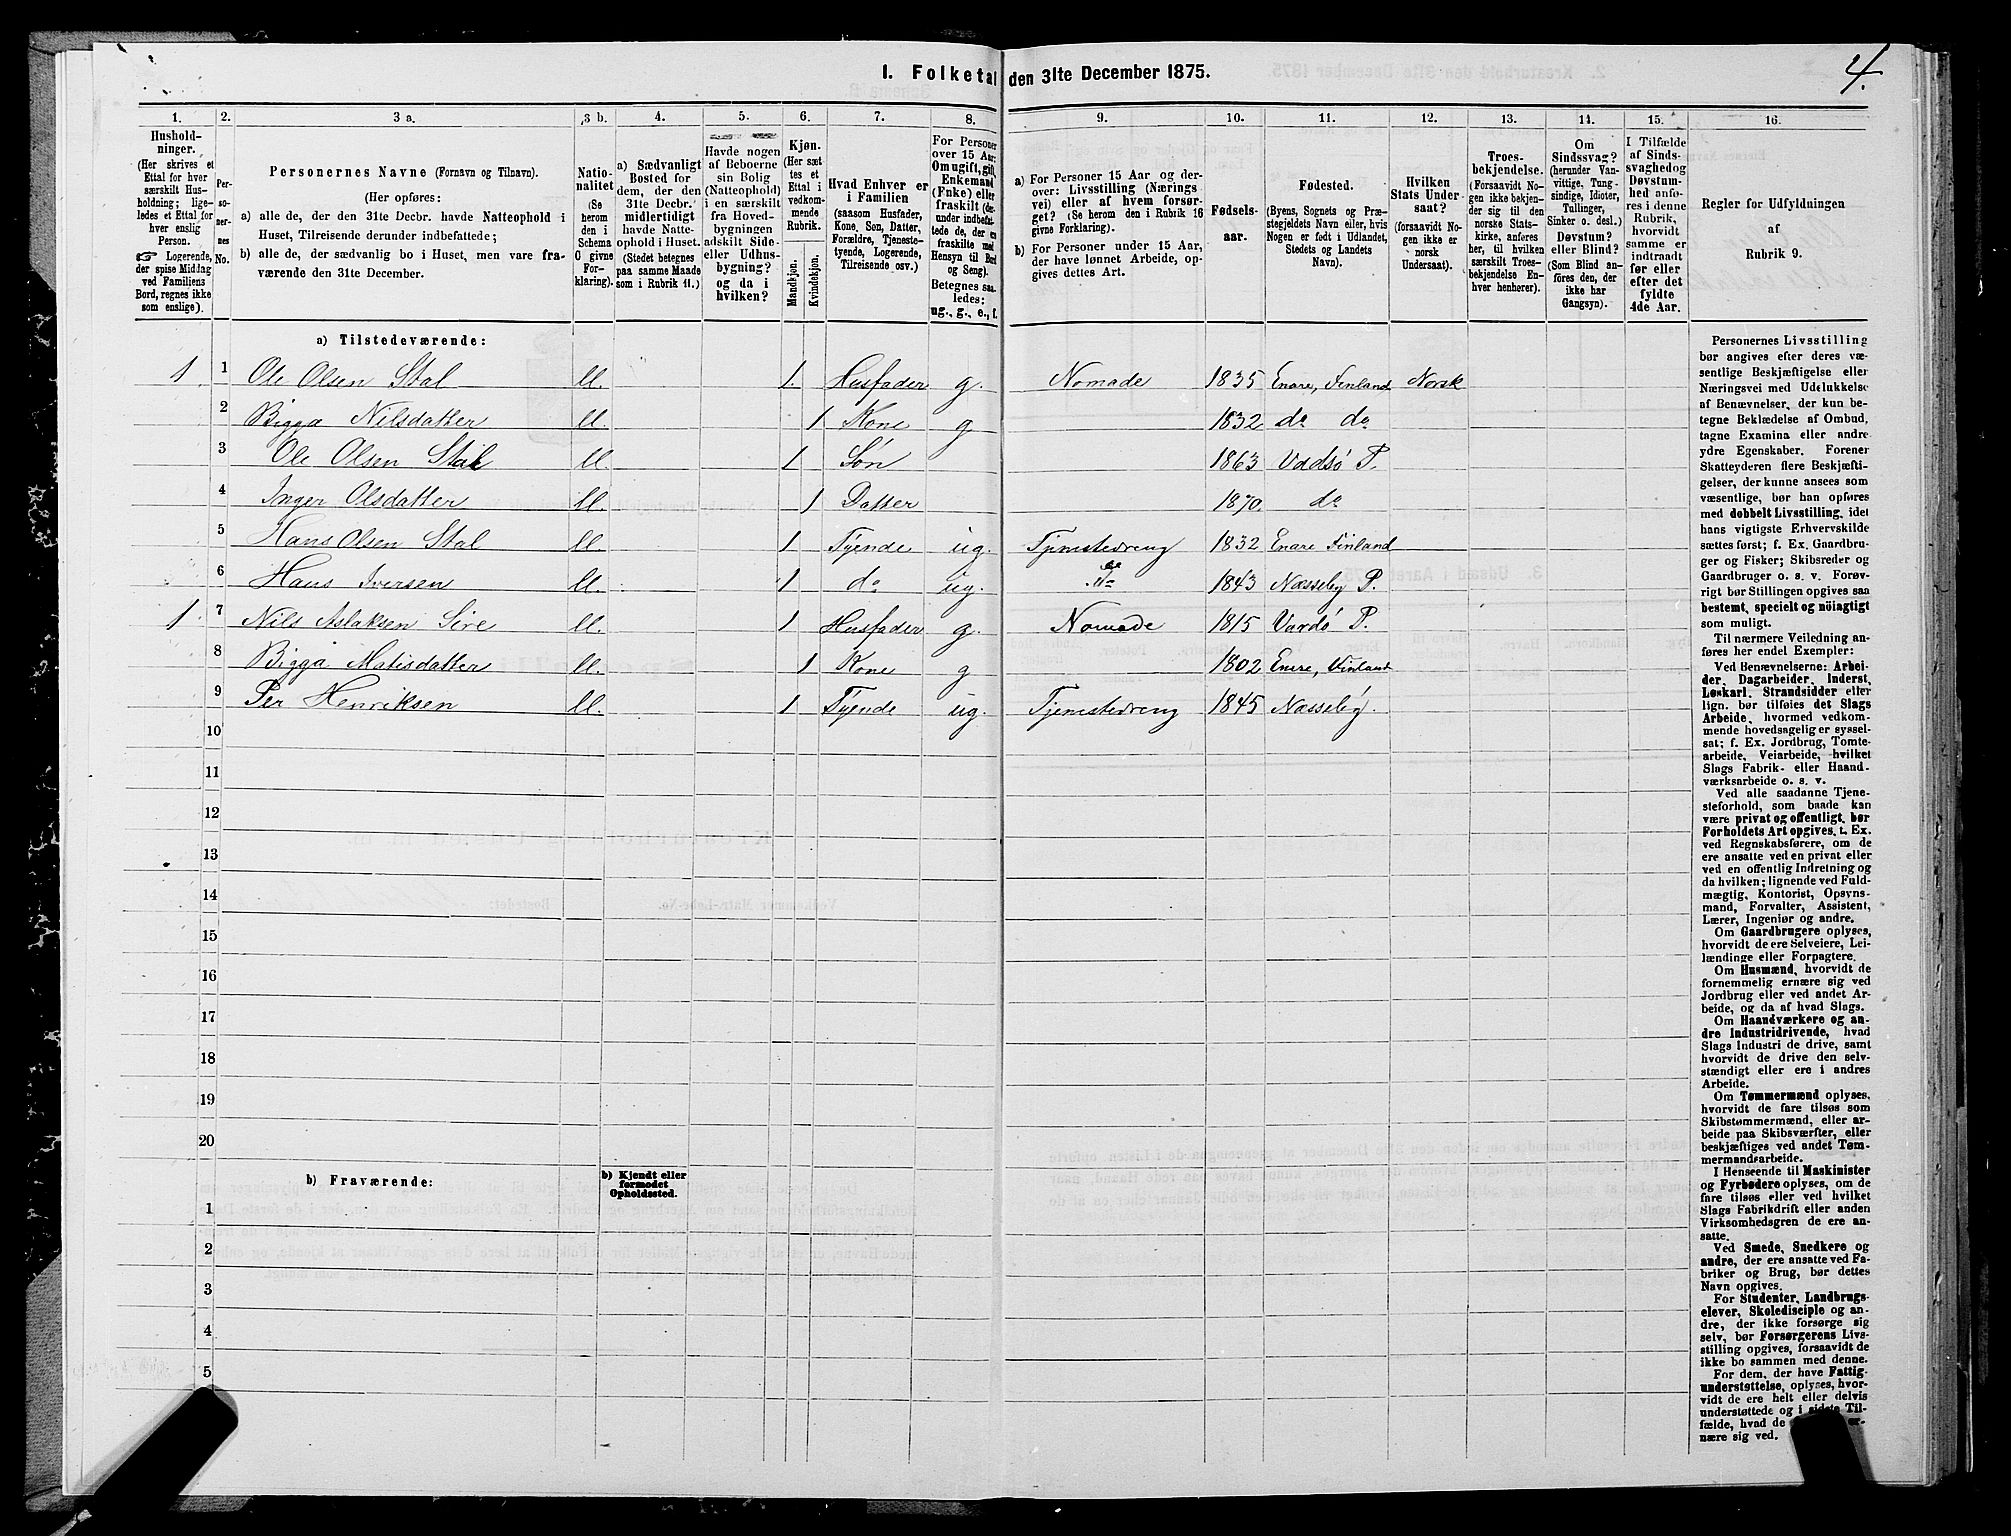 4.
1. Folketal den 31te December 1875.
1. 2. 3 a. 3 b. 4. 5. 6. 7. 8. 9. 10. 11. 12. 13. 14. 15. 16.
Hushold-
ninger.
(Her skrives et
Ettal for hver
særskilt Hus-
holdning; lige-
ledes et Ettal for
hver enslig
Person.
☞ Logerende,
der spise Middag
ved Familiens
Bord, regnes ikke
som enslige).
Per-
so-
ner-
nes
No.
Personernes Navne (Fornavn og Tilnavn).
(Her opføres:
a) alle de, der den 31te Decbr. havde Natteophold i
Huset, Tilreisende derunder indbefattede;
b) alle de, der sædvanlig bo i Huset, men vare fra-
værende den 31te December.
Natio-
nalitet
(Se
herom
den i
Schema
C givne
For-
klaring).
a) Sædvanligt
Bosted for
dem, der den
31te Decbr.
midlertidigt
havde Natte-
ophold i Huset.
(Stedet betegnes
paa samme Maade
som i Rubrik 11.)
Havde nogen
af Beboerne
sin Bolig
(Natteophold)
i en særskilt
fra Hoved-
bygningen
adskilt Side-
eller Udhus-
bygning?
og da i
hvilken?
Kjøn.
(Her sæt-
tes et
Ettal i
vedkom-
mende
Rubrik.
Mandkjøn.
Kvindekjøn.
Hvad Enhver er
i Familien
(saasom Husfader,
Kone, Søn, Datter,
Forældre, Tjeneste-
tyende, Logerende,
Tilreisende osv.)
For Personer
over 15 Aar:
Om ugift, gift,
Enkemand
(Enke) eller
fraskilt (der-
under indbefat-
tede de, der ere
fraskilte med
Hensyn til Bord
og Seng).
Betegnes saa-
ledes:
ug., g., e., f.
a) For Personer 15 Aar og der-
over: Livsstilling (Nærings
vei) eller af hvem forsør-
get? (Se herom den i Rubrik 16
givne Forklaring).
b) For Personer under 15 Aar,
der have lønnet Arbeide, op-
gives dettes Art.
Fødsels-
aar.
Fødested.
(Byens, Sognets og Præ-
stegjeldets Navn eller, hvis
Nogen er født i Udlandet,
Stedets og Landets
Navn).
Hvilken
Stats Under
saat?
(forsaavidt No-
gen ikke er
norsk
Undersaat).
Troes-
bekjendelse.
(Forsaavidt No-
gen ikke bekjen-
der sig til den
norske Stats-
kirke, anføres
her, til hvilken
særskilt Troes-
bekjendelse En-
hver henhører).
Om
Sindssvag?
(herunder Van-
vittige, Tung-
sindige, Idioter,
Tullinger,
Sinker o. desl.)
Døvstum?
eller Blind?
(Som Blind an-
føres den, der
ikke har
Gangsyn).
I Tilfælde
af Sinds-
svaghed og
Døvstum-
hed anfø-
res i denne
Rubrik,
hvorvidt
samme er
indtraadt
før eller
efter det
fyldte
4de Aar.
Regler for Udfyldningen
af
Rubrik 9.
a) Tilstedeværende:
1 1 Ole Olsen Stal ll. 1. Husfader g. Nomade 1835 Enare, Finland Norsk
2 Bigga Nilsdatter ll. 1 Kone g 1832 do do
3 Ole Olsen Stal ll. 1 Søn 1863 Vadsø P.
4 Inger Olsdatter ll. 1 Datter 1870. do
5 Hans Olsen Stal ll. 1 Tyende ug. Tjenestedreng 1832 Enare Finland
6 Hans Iversen ll. 1 do ug. do 1843 Næsseby P.
1. 7 Nils Aslaksen Sire ll. 1 Husfader g. Nomade 1815 Vardø P.
8 Bigga Matisdatter ll. 1 Kone g 1802 Enare, Finland
9 Per Henriksen ll. 1 Tyende ug. Tjenestedreng 1845 Næsseby.
10
11
12
13
14
15
16
17
18
19
20
b) Fraværende:
b) Kjendt eller
formodet
Opholdssted.
1
2
3
4
5
Personernes Livsstilling
bør angives efter deres væ-
sentlige Beskjæftigelse eller
Næringsvei med Udelukkelse
af Benævnelser, der kun be-
tegne Beklædelse af Ombud,
tagne Examina eller andre
ydre Egenskaber. Forener
Skatteyderen flere Beskjæfti-
gelser, der kunne ansees som
væsentlige, bør han opføres
med dobbelt Livsstilling, idet
hans vigtigste Erhvervskilde
sættes først; f. Ex. Gaardbru-
ger og Fisker; Skibsreder og
Gaardbruger o. s. v. Forøv-
rigt bør Stillingen opgives saa
bestemt, specielt og nöiagtigt
som muligt.
Til nærmere Veiledning an-
føres her endel Exempler:
Ved Benævnelserne: Arbei-
der, Dagarbeider, Inderst,
Løskarl, Strandsidder eller
lign. bør tilføies det Slags
Arbeide, hvormed vedkom-
mende hovedsagelig er syssel-
sat; f. Ex. Jordbrug, Tomte-
arbeide, Veiarbeide, hvilket
Slags Fabrik- eller Haand-
værksarbeide o. s. v.
Ved alle saadanne Tjene-
steforhold, som baade kan
være privat og offentligt, bør
Forholdets Art opgives, t. Ex.
ved Regnskabsførere, om de
ere ansatte ved en privat eller
ved en offentlig Indretning og
da hvilken; lignende ved Fuld-
mægtig, Kontorist, Opsyns-
mand, Forvalter, Assistent,
Lærer, Ingeniør og andre.
Om Gaardbrugere oplyses,
hvorvidt de ere Selveiere, Lei-
lændinge eller Forpagtere.
Om Husmænd, hvorvidt de
fornemmelig ernære sig ved
Jordbrug eller ved andet Ar-
beide, og da af hvad Slags.
Om Haandværkere og an-
dre Industridrivende, hvad
Slags Industri de drive, samt
hvorvidt de drive den selv-
stændigt eller ere i andres
Arbeide.
Om Tømmermænd oplyses,
hvorvidt de fare tilsøs som
Skibstømmermænd, eller ar-
beide paa Skibsværfter, eller
beskjæftiges ved andet Tøm-
mermandsarbeide.
I Henseende til Maskinister
og Fyrbødere oplyses, om de
fare tilsøs eller ved hvilket
Slags Fabrikdrift eller anden
Virksomhedsgren de ere an-
satte.
Ved Smede, Snedkere og
andre, der ere ansatte ved Fa-
briker og Brug, bør dettes
Navn opgives.
For Studenter, Landbrugs-
elever, Skoledisciple og an-
dre, der ikke forsørge sig
selv, bør Forsørgerens Livs-
stilling opgives, forsaavidt de
ikke bo sammen med denne.
For dem, der have Fattig-
understøttelse, oplyses, hvor-
vidt de ere helt eller delvis
understøttede og i sidste Til-
fælde, hvad de er-
nære sig ved.